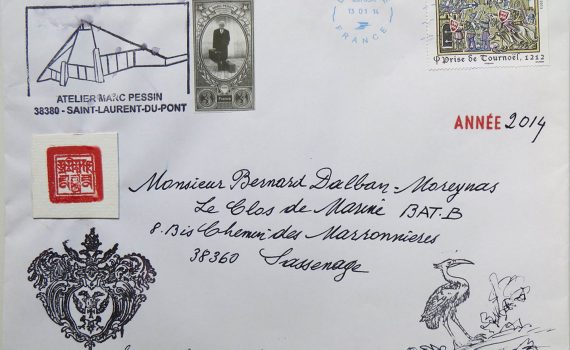 13 03 14
FRANCE
Prise de Tournoël, 1212
ATELIER MARC PESSIN
38380 - SAINT-LAURENT-DU-PONT
3 3
ANNÉE 2014
Monsieur Bernard Dalban-Moreynas
Le Clos de Mariné BAT-B
8.Bis Chemin des Marronnieres
38360 Sassenage